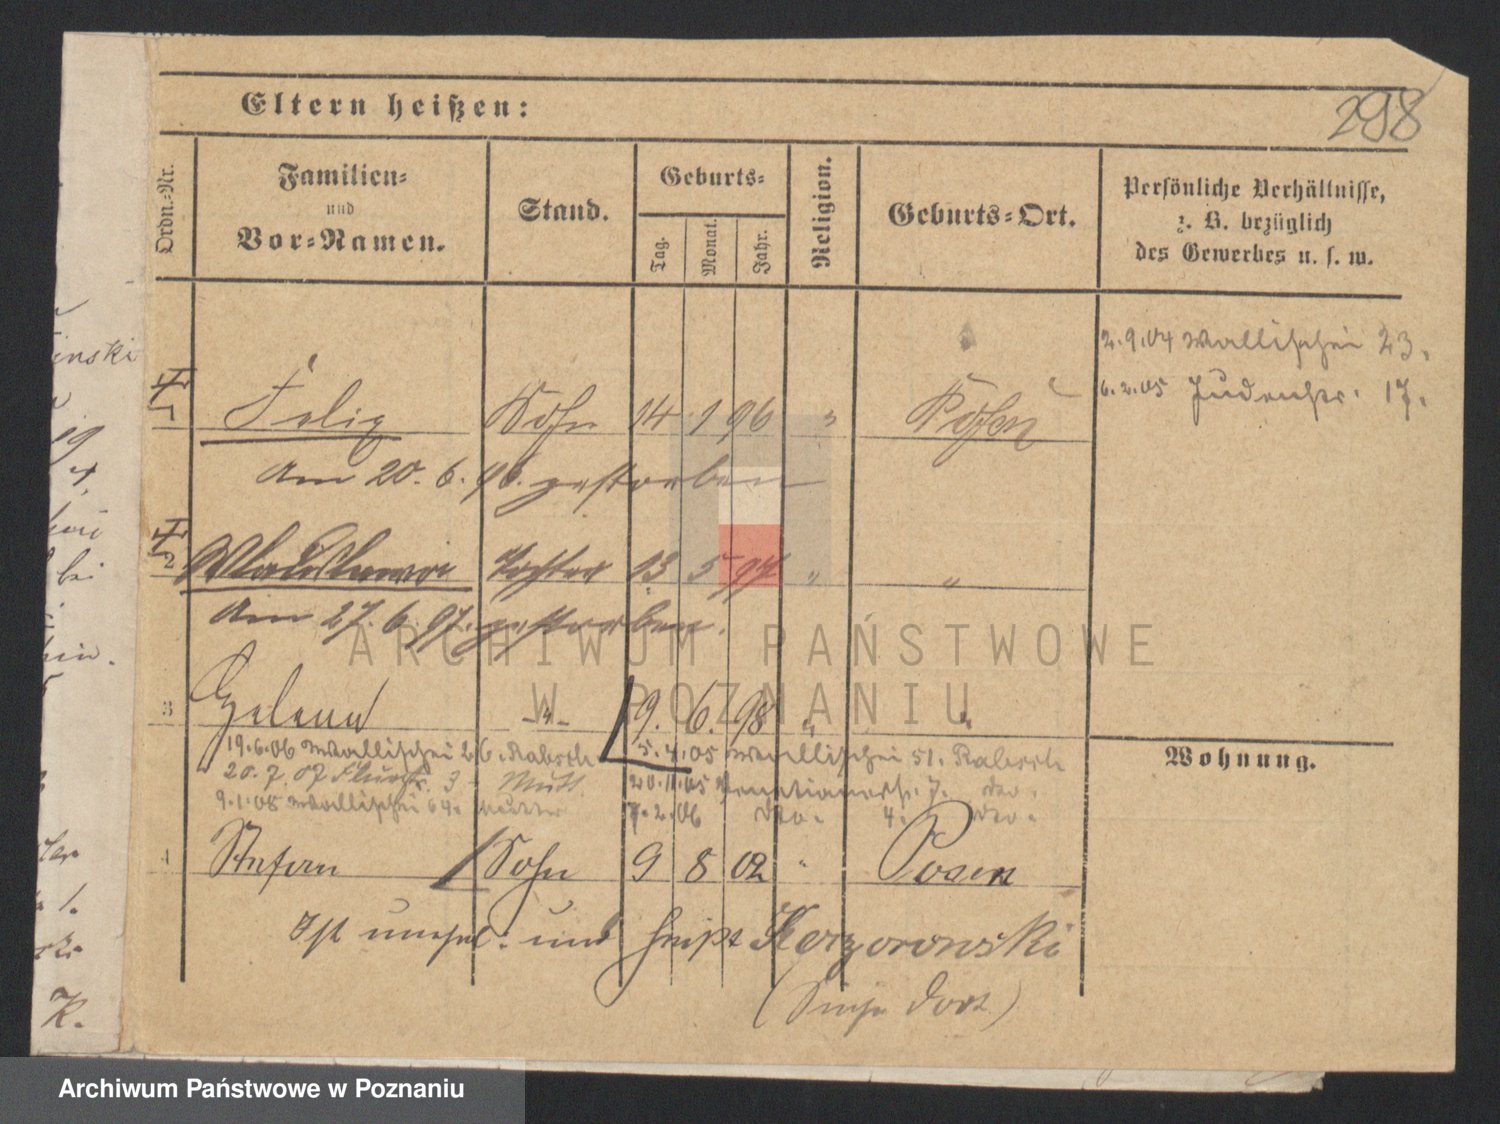 298
Eltern heißen:
Ordn.-Nr.
Familien-
und
Vor-Namen.
Stand.
Geburts-
Tag.
Monat.
Jahr.
Religion.
Geburts-Ort.
Persönliche Verhältnisse,
z. B. bezüglich
des Gewerbes u. s. w.
2.9.04 Wallischei 23.
6.2.05 Judenstr. 17.
1 Felix Sohn 14 1 96 " Posen
am 20. 6. 96. gestorben
2 Tochter 13 5 97 " "
Am 27. 6. 97. gestorben.
3 Helena -"- 9. 6. 98 " "
19.6.06 Wallischei 26.
5.4.05 Wallischei 51.
20.7.07 3 Mutt.
20.11.05 Venetianerstr. 7. dto.
9.1.08 Wallischei 64. Mutter
7.2.06 dto. 4. dto.
4 Stefan Sohn 9 8 02 " Posen
Ist unehel. und heißt Kerzorowski
(Siehe dort)
Wohnung.
inski
bei
K.
ARCHIWUM PAŃSTWOWE
W POZNANIU
Archiwum Państwowe w Poznaniu